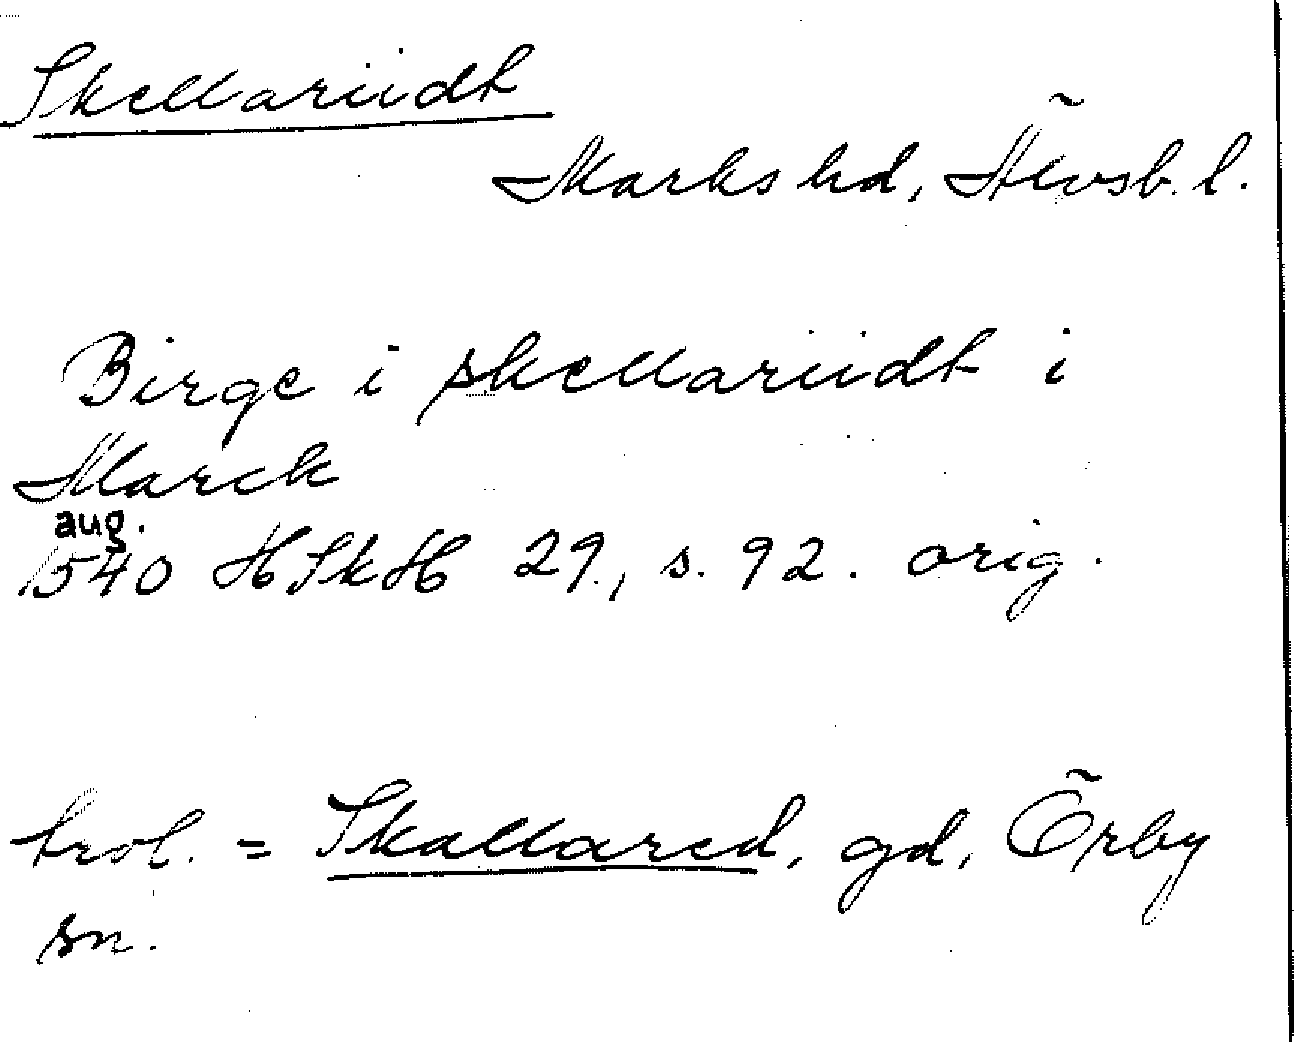 Skellariidt
Marks hd, Älvsb. l.
Birge i skellariidt i
Marck
aug.
1540 HSkH 29, s. 92. orig.
trol. = Skallared, gd, Örby
sn.